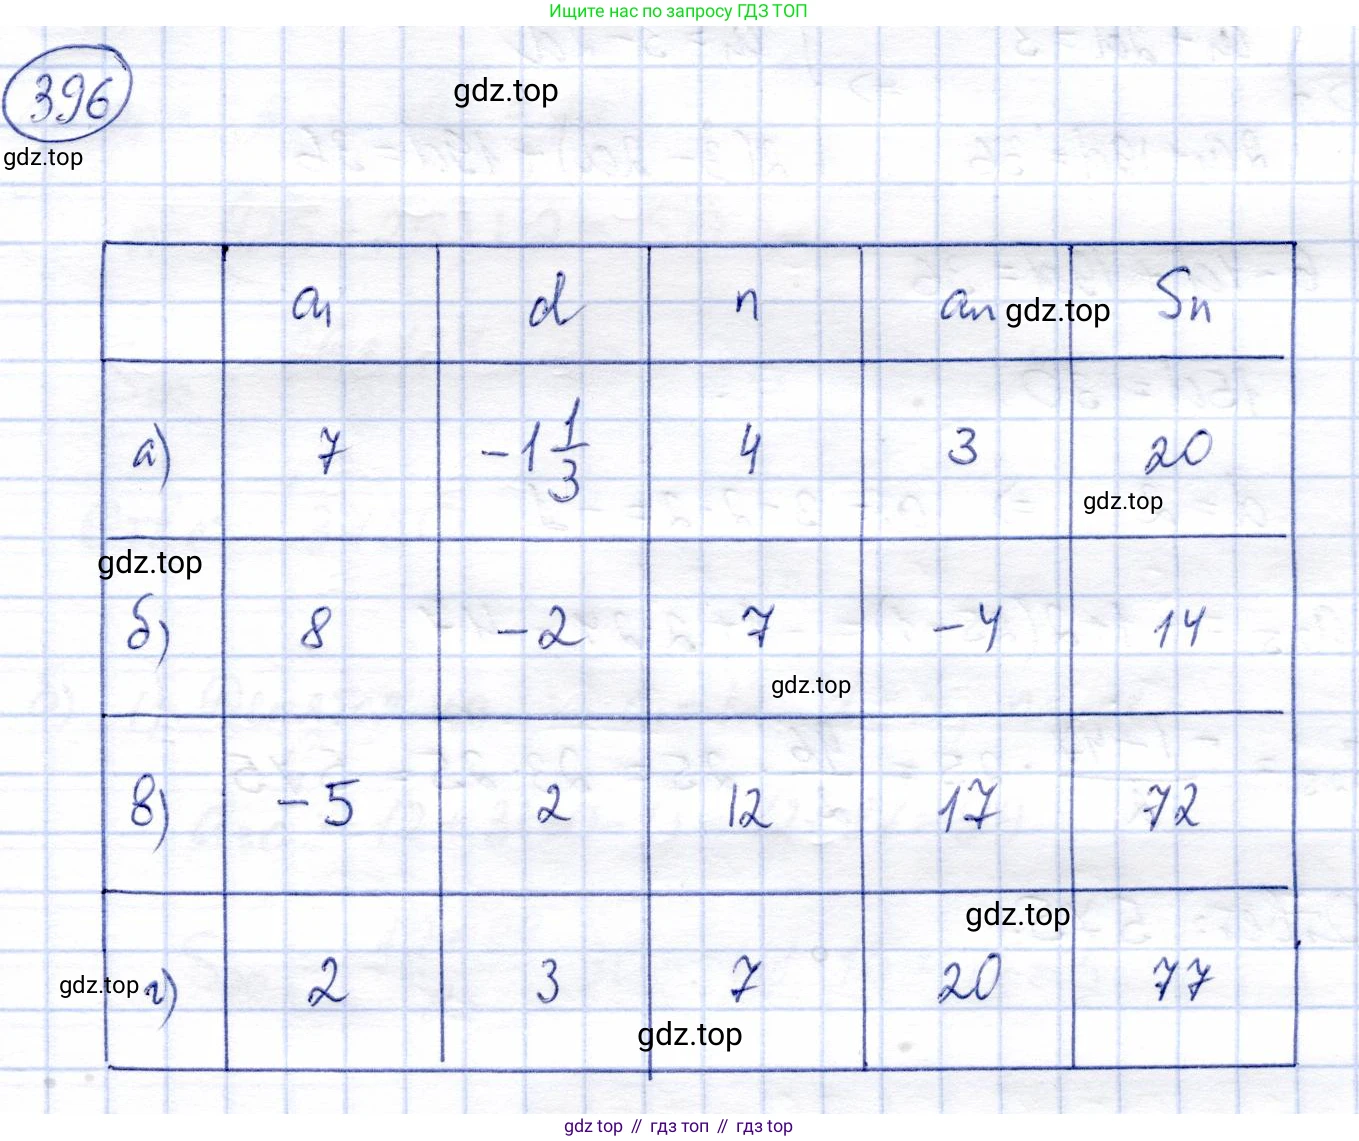 Ищите нас по запросу ГДЗ ТОП
396
gdz.top
gdz.top
a₁ d n aₙ gdz.top Sₙ
а) 7 -1 1/3 4 3 20
gdz.top
gdz.top
б) 8 -2 7 -4 14
gdz.top
в) -5 2 12 17 72
gdz.top
gdz.top г) 2 3 7 20 77
gdz.top
gdz top // гдз топ // gdz top